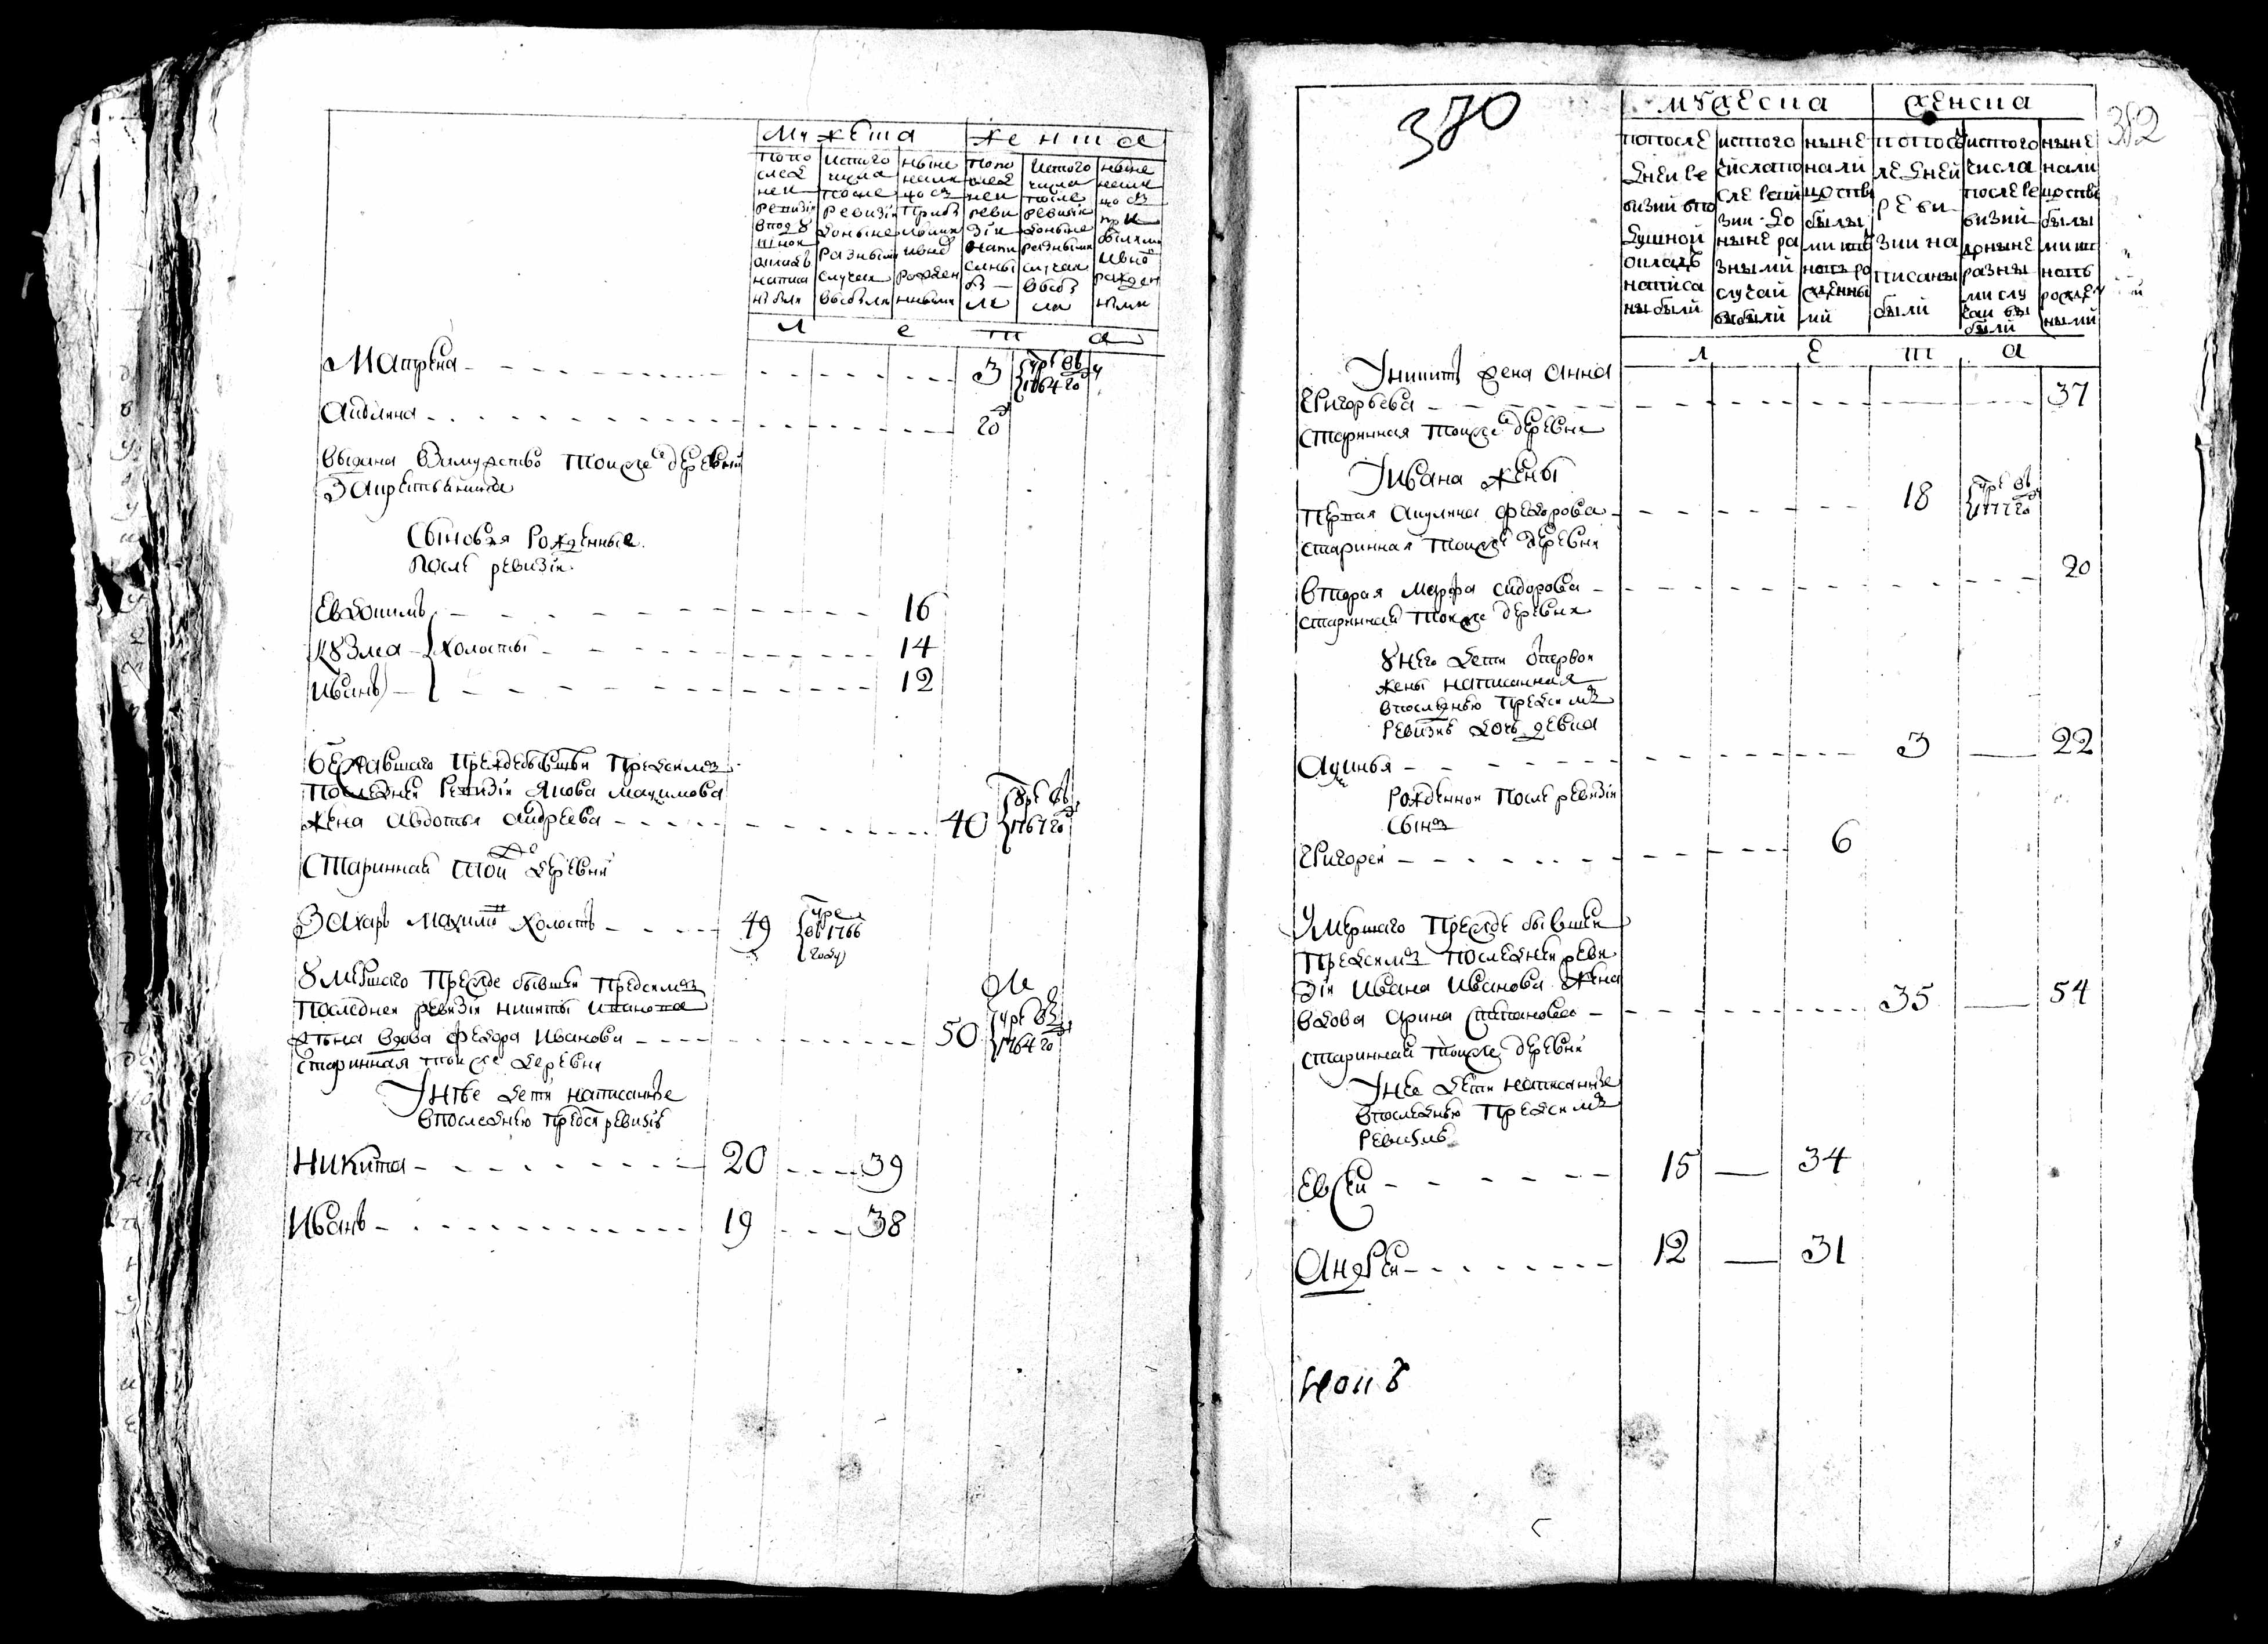 Мужеска
Женска
попо
следней
ревизии
в подушной
оклад
написаны были
из того
числа
после
ревизии
до ныне
разными
случаи
выбыли
ныне
налицо с
прибылыми
и вновь
рожденными
попо
следней
ревизии
написаны
были
из того
числа
после
ревизии
до ныне
разными
случаи
выбыла
ныне
налицо с
при
былыми
и вновь
рожденными
л е т а
Матрена 3 умре въ 1764 году
Акилина 2
выдана в замужство той же деревни
за крестьянина
Сыновья рожденные
после ревизiи
Евдокимъ 16
Кузма холосты 14
Иванъ 12
бежавшаго прежде бывшей пред симъ
последней ревизiи Якова Махимова
жена Авдотья Андреева 40 умре въ 1767 году
старинная той деревни
Захаръ Махимо холостъ 49 умре въ 1766 году
умершаго прежде бывшей пред симъ
последней ревизiи Никиты Иванова
жена вдова Федора Иванова 50 умре въ 1764 году
старинная той же деревни
У нее дети написанные
в последнею пред сим ревизiю
Никита 20 39
Иванъ 19 38
380
382
мужеска
женска
по последней ревизии в подушной окладъ написаны были
из того числа после ревизии до ныне разными случаи выбыли
ныне налицо с прибылыми и вновь рожденными
по последней ревизии написаны были
из того числа после ревизии до ныне разными случаи выбыли
ныне налицо с прибылыми и вновь рожденными
л е т а
У Никиты жена Анна
Григорьева 37
старинная той же деревни
У Ивана жены
первая Акулина Федорова 18 умре въ
старинная той же деревни
вторая Марфа Сидорова 20
старинная той же деревни
у него дети от первой
жены написанная
в последнею пред симъ
ревизiю дочь девка
3 22
рожденной после ревизiи
сынъ
Григорей 6
Умершаго прежде бывшей
пред симъ последней реви
зiи Ивана Иванова жена
вдова Арина Степанова 35 54
старинная той же деревни
У нее дети написанные
в последнею пред симъ
ревизiю
Евсей 15 34
Андрей 12 31